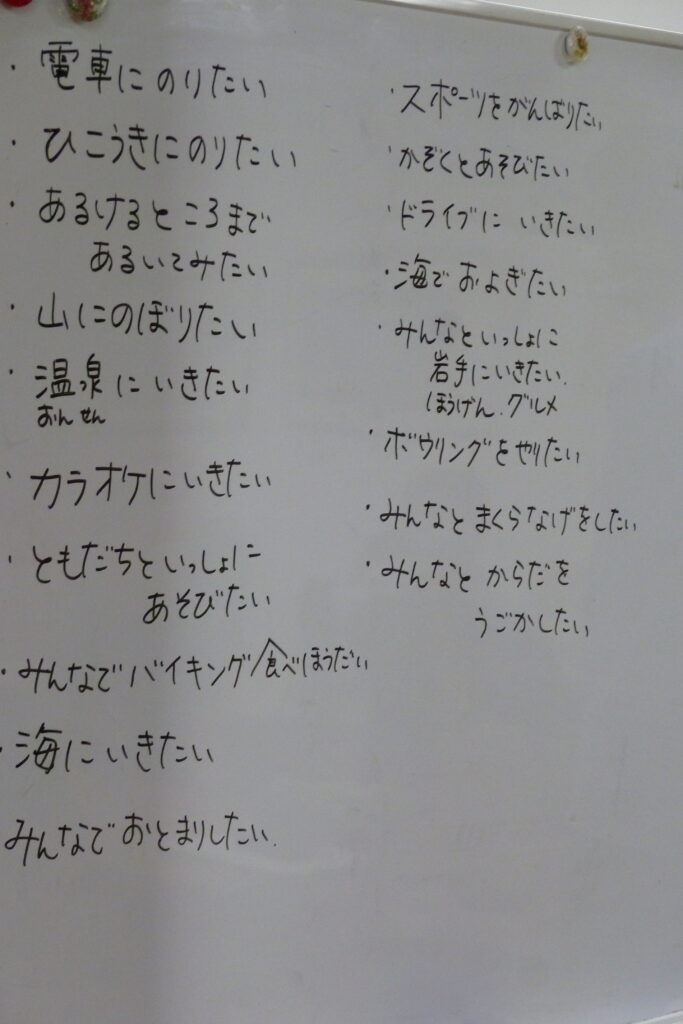 ・電車にのりたい
・ひこうきにのりたい
・あるけるところまで
あるいてみたい
・山にのぼりたい
・温泉にいきたい
おんせん
・カラオケにいきたい
・ともだちといっしょに
あそびたい
・みんなでバイキング/食べほうだい
・海にいきたい
みんなでおとまりしたい.
・スポーツをがんばりたい
・かぞくとあそびたい
・ドライブにいきたい
・海でおよぎたい
・みんなといっしょに
岩手にいきたい.
ほうげん.グルメ
・ボウリングをやりたい
・みんなとまくらなげをしたい
・みんなとからだを
うごかしたい